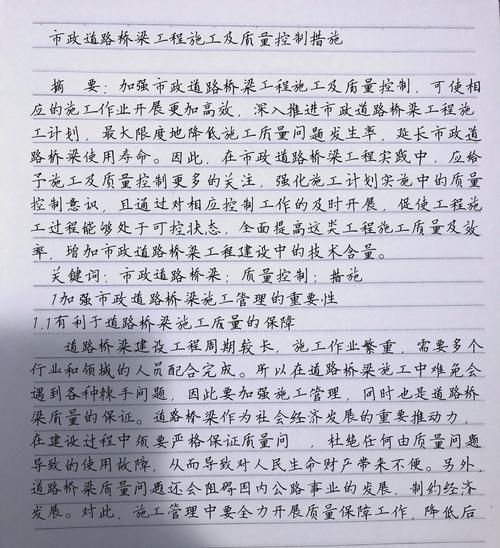 市政道路桥梁工程施工及质量控制措施
摘 要：加强市政道路桥梁工程施工及质量控制，可使相
应的施工作业开展更加高效，深入推进市政道路桥梁工程施
工计划，最长限度地降低施工质量问题发生率，延长市政道
路桥梁使用寿命。因此，在市政道路桥梁工程实践中，应给
予施工及质量控制更多的关注，强化施工计划实施中的质量
控制意识，且通过对相应控制工作的及时开展，促使工程施
工过程能够处于可控状态，全面提高这类工程施工质量及效
率，增加市政道路桥梁工程建设中的技术含量。
关键词：市政道路桥梁；质量控制；措施
1加强市政道路桥梁施工管理的重要性
1.1有利于道路桥梁施工质量的保障
道路桥梁建设工程周期较长，施工作业繁重，需要多个
行业和领域的人员配合完成。所以在道路桥梁施工中难免会
遇到各种棘手问题，因此要加强施工管理，同时也是道路桥
梁质量的保证。道路桥梁作为社会经济发展的重要推动力，
在建设过程中须要严格保证质量问 ，杜绝任何由质量问题
导致的使用故障，从而导致对人民生命财产带来不便。另外，
道路桥梁质量问题还会阻碍国内公路事业的发展，制约经济
发展。对此，施工管理中要全力开展质量保障工作，降低后